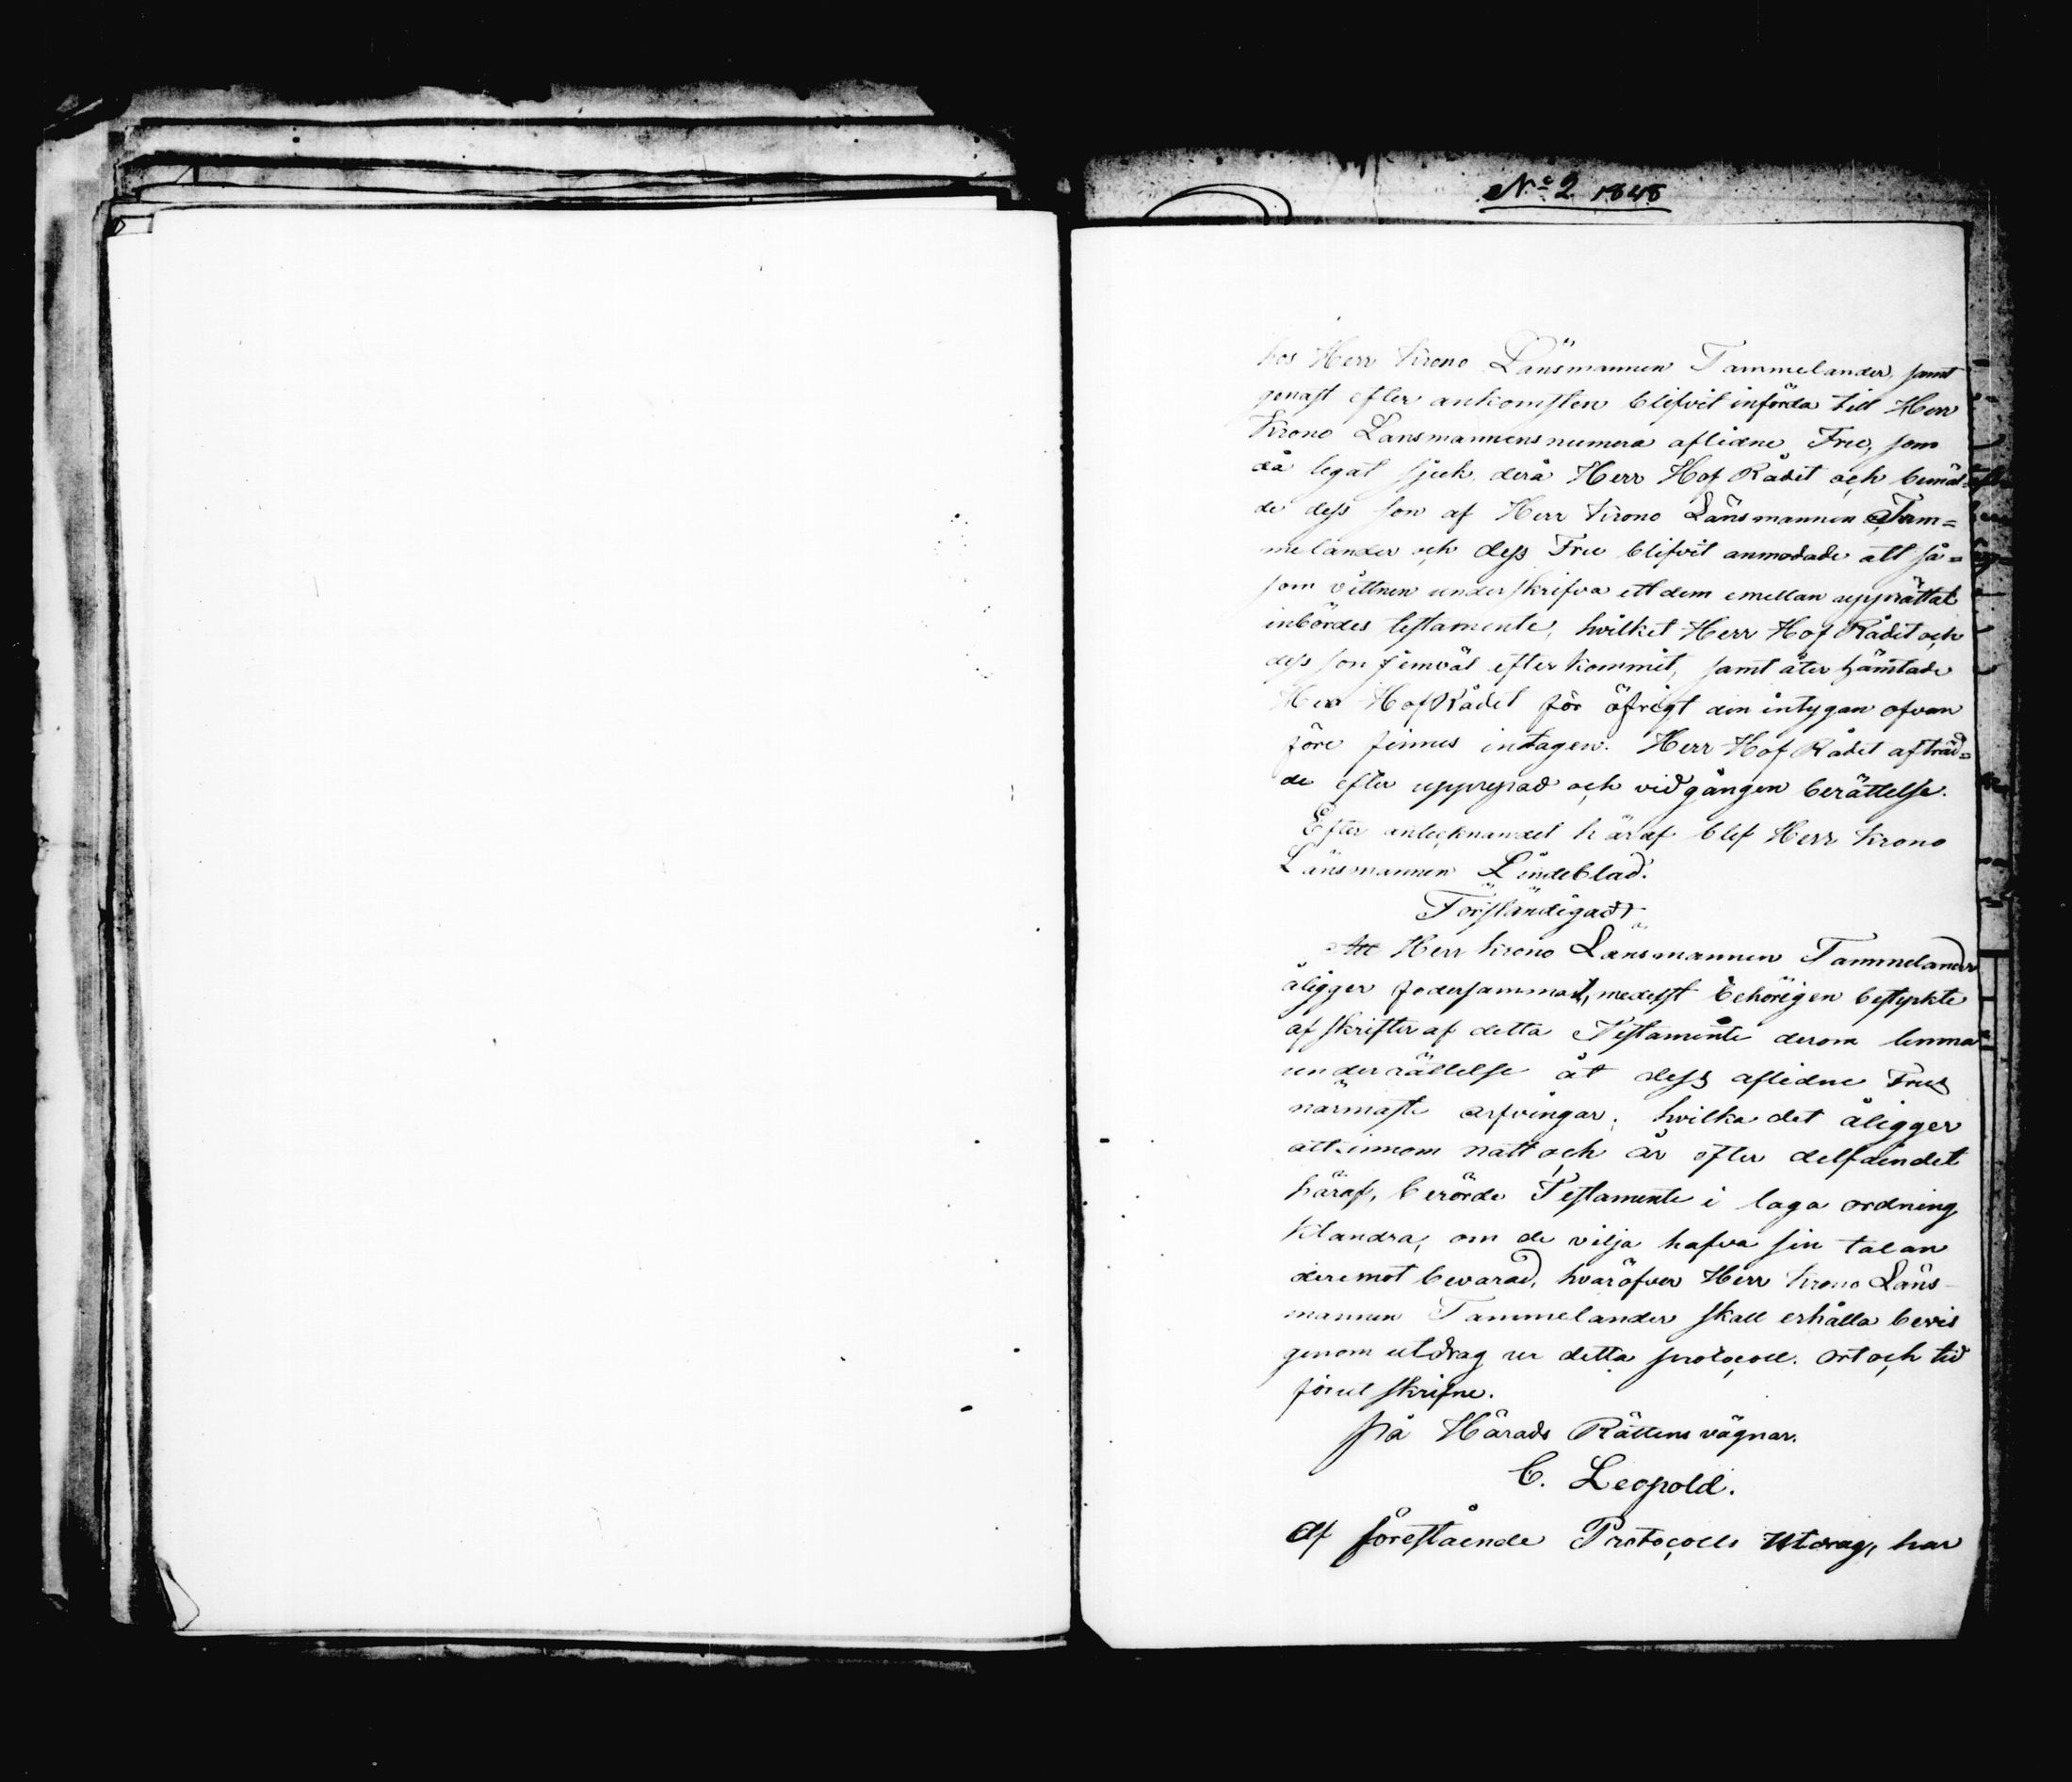 No 2 1848
hos Herr Krono Länsmannen Tammelander, samt
genast efter ankomsten blifvit införda till Herr
Krono Länsmannens numera aflidne Fru, som
då legat sjuk, derå Herr Hof Rådet och bemäl-
de dess son af Herr Krono Länsmannen Tam=
melander och dess Fru blifvit anmodade att så=
som vittnen underskrifva ett dem emellan upprättat
inbördes testamente, hvilket Herr Hof Rådet och
dess son jemväl efterkommit, samt åter hämtade
Herr Hof Rådet för öfrigt den intygan ofvan
före finnes intagen. Herr Hof Rådet afträd=
de efter upprepad och vidgången berättelse.
Efter antecknandet häraf blef Herr Krono
Länsmannen Lindeblad.
Förständigadt
Att Herr Krono Länsmannen Tammelander
åligger fodersammast, medelst behörigen bestyrkte
afskrifter af detta Testamente derom lemna
underrättelse åt dess aflidne Frus
närmaste arfvingar, hvilka det åligger
att innom natt och år efter delfåendet
häraf, berörde Testamente i laga ordning
klandra, om de vilja hafva sin talan
deremot bevarad, hvaröfver Herr Krono Läns-
mannen Tammelander skall erhålla bevis
genom utdrag ur detta protocoll. Ort och tid
förut skrifne.
På Härads Rättens vägnar.
C. Leopold.
Af förestående Protocolls Utdrag, har